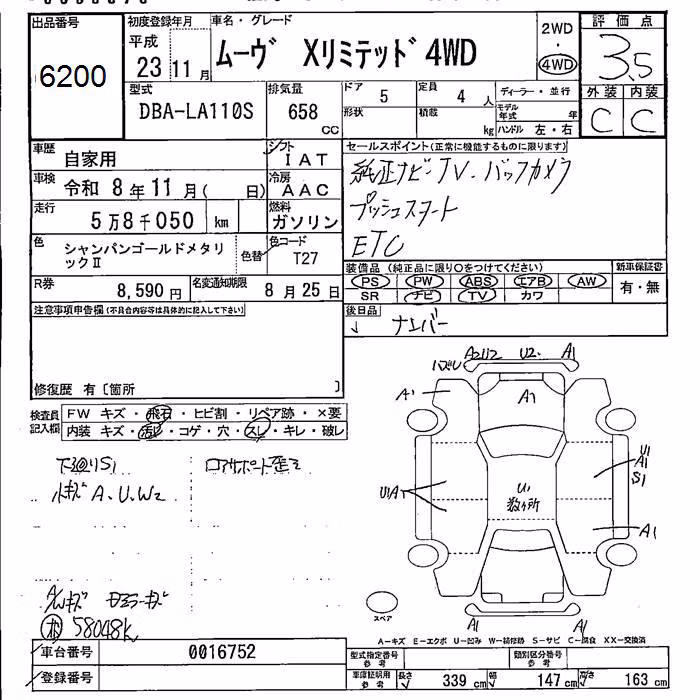 出品番号
6200
初度登録年月
平成
23 11 月
車名・グレード
ムーヴ Xリミテッド 4WD
2WD
・
4WD
評価点
3.5
外装 内装
C C
型式
DBA-LA110S
排気量
658
cc
ドア 5
形状
定員 4 人
積載 kg
ディーラー・並行
モデル年式 年
ハンドル 左・右
車歴 自家用
シフト IAT
車検 令和 8年 11月( 日)
冷房 AAC
走行 5万8千050 km
燃料 ガソリン
色 シャンパンゴールドメタリックⅡ
色替
色コード T27
R券 8,590円
名変通知期限 8月25日
セールスポイント(正常に機能するものに限ります)
純正ナビ・TV・バックカメラ
プッシュスタート
ETC
装備品(純正品に限り○をつけてください)
新車保証書
PS PW ABS エアB AW
SR ナビ TV カワ
有・無
後日品
ナンバー
注意事項申告欄(不具合内容等は具体的に記入して下さい)
修復歴 有〔箇所 〕
検査員記入欄
FW キズ・飛石・ヒビ割・リペア跡・×要
内装 キズ・汚レ・コゲ・穴・スレ・キレ・破レ
下廻りS1
小キズA.U.W2
コアサポート歪ミ
A/Wキズ
58048K
A2U2 U2 A1
バズレ
A1
A1
U1A1
U1
数ヶ所
U1
A1
S1
A1
A1
A1
スペア
A－キズ E－エクボ U－凹み W－補修跡 S－サビ C－腐食 XX－交換済
車台番号 0016752
登録番号
型式指定番号
参考
類別区分番号
参考
車庫証明用
参考
長さ 339 cm 幅 147 cm 高さ 163 cm